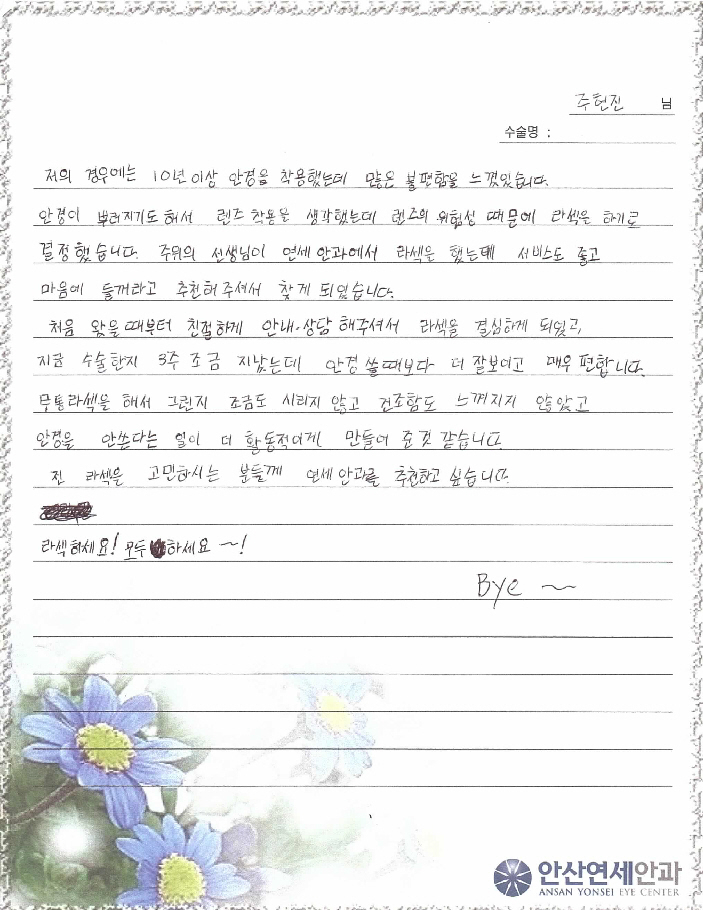 주헌진 님
수술명 :
저의 경우에는 10년 이상 안경을 착용했는데 많은 불편함을 느꼈었습니다.
안경이 부러지기도 해서 렌즈 착용을 생각했는데 렌즈의 위험성 때문에 라섹을 하기로
결정했습니다. 주위의 선생님이 연세안과에서 라섹을 했는데 서비스도 좋고
마음에 들꺼라고 추천해주셔서 찾게 되었습니다.
처음 왔을때부터 친절하게 안내·상담 해주셔서 라섹을 결심하게 되었고,
지금 수술한지 3주 조금 지났는데 안경 쓸때보다 더 잘보이고 매우 편합니다.
무통라섹을 해서 그런지 조금도 시리지 않고 건조함도 느껴지지 않았고
안경을 안쓴다는 일이 더 활동적이게 만들어 준것 같습니다.
전 라섹을 고민하시는 분들께 연세안과를 추천하고 싶습니다.
라섹하세요! 모두 하세요 ~!
Bye ~
안산연세안과
ANSAN YONSEI EYE CENTER